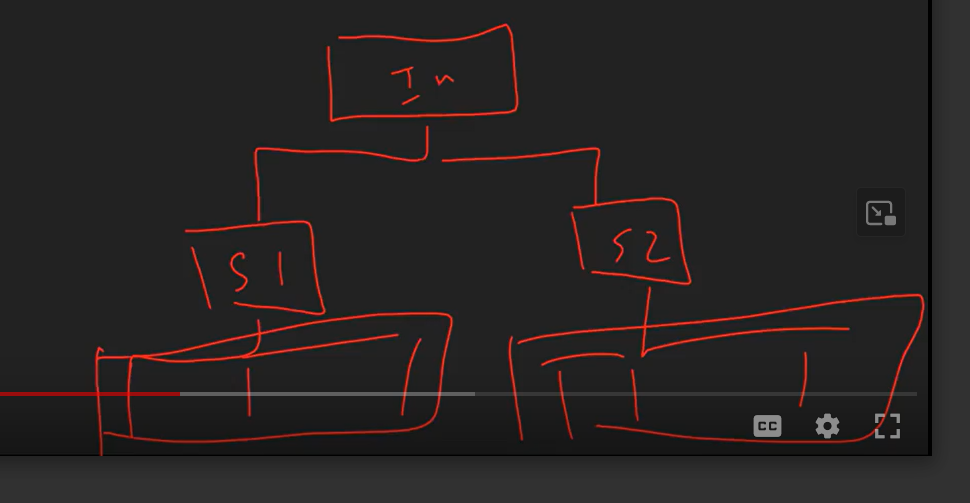 In
S1
S2
CC